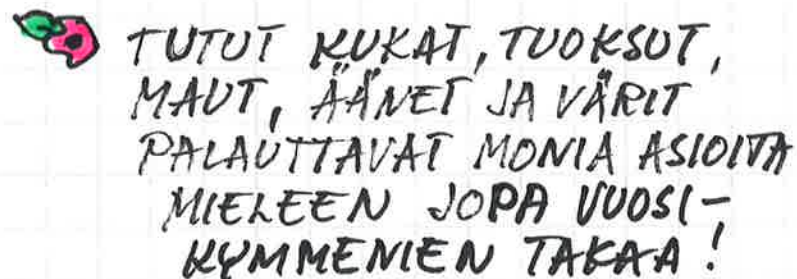 TUTUT KUKAT, TUOKSUT,
MAUT, ÄÄNET JA VÄRIT
PALAUTTAVAT MONIA ASIOITA
MIELEEN JOPA VUOSI-
KYMMENIEN TAKAA!